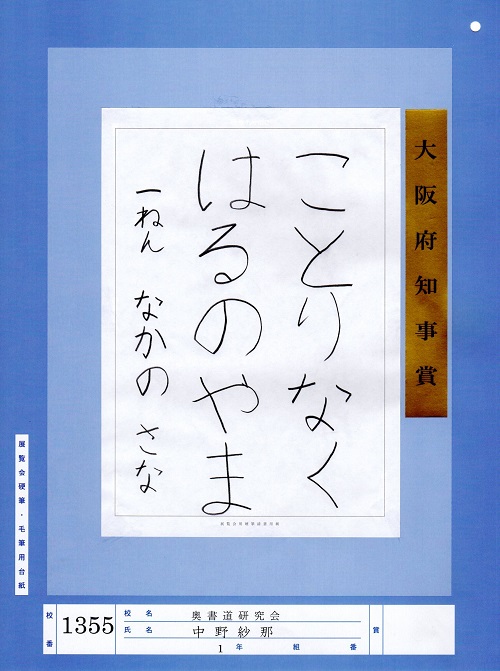 大阪府知事賞
ことりなく
はるのやま
一ねん なかの さな
展覧会硬筆・毛筆用台紙
校番 1355
校名 奥書道研究会
氏名 中野紗那
1年 組 番
賞